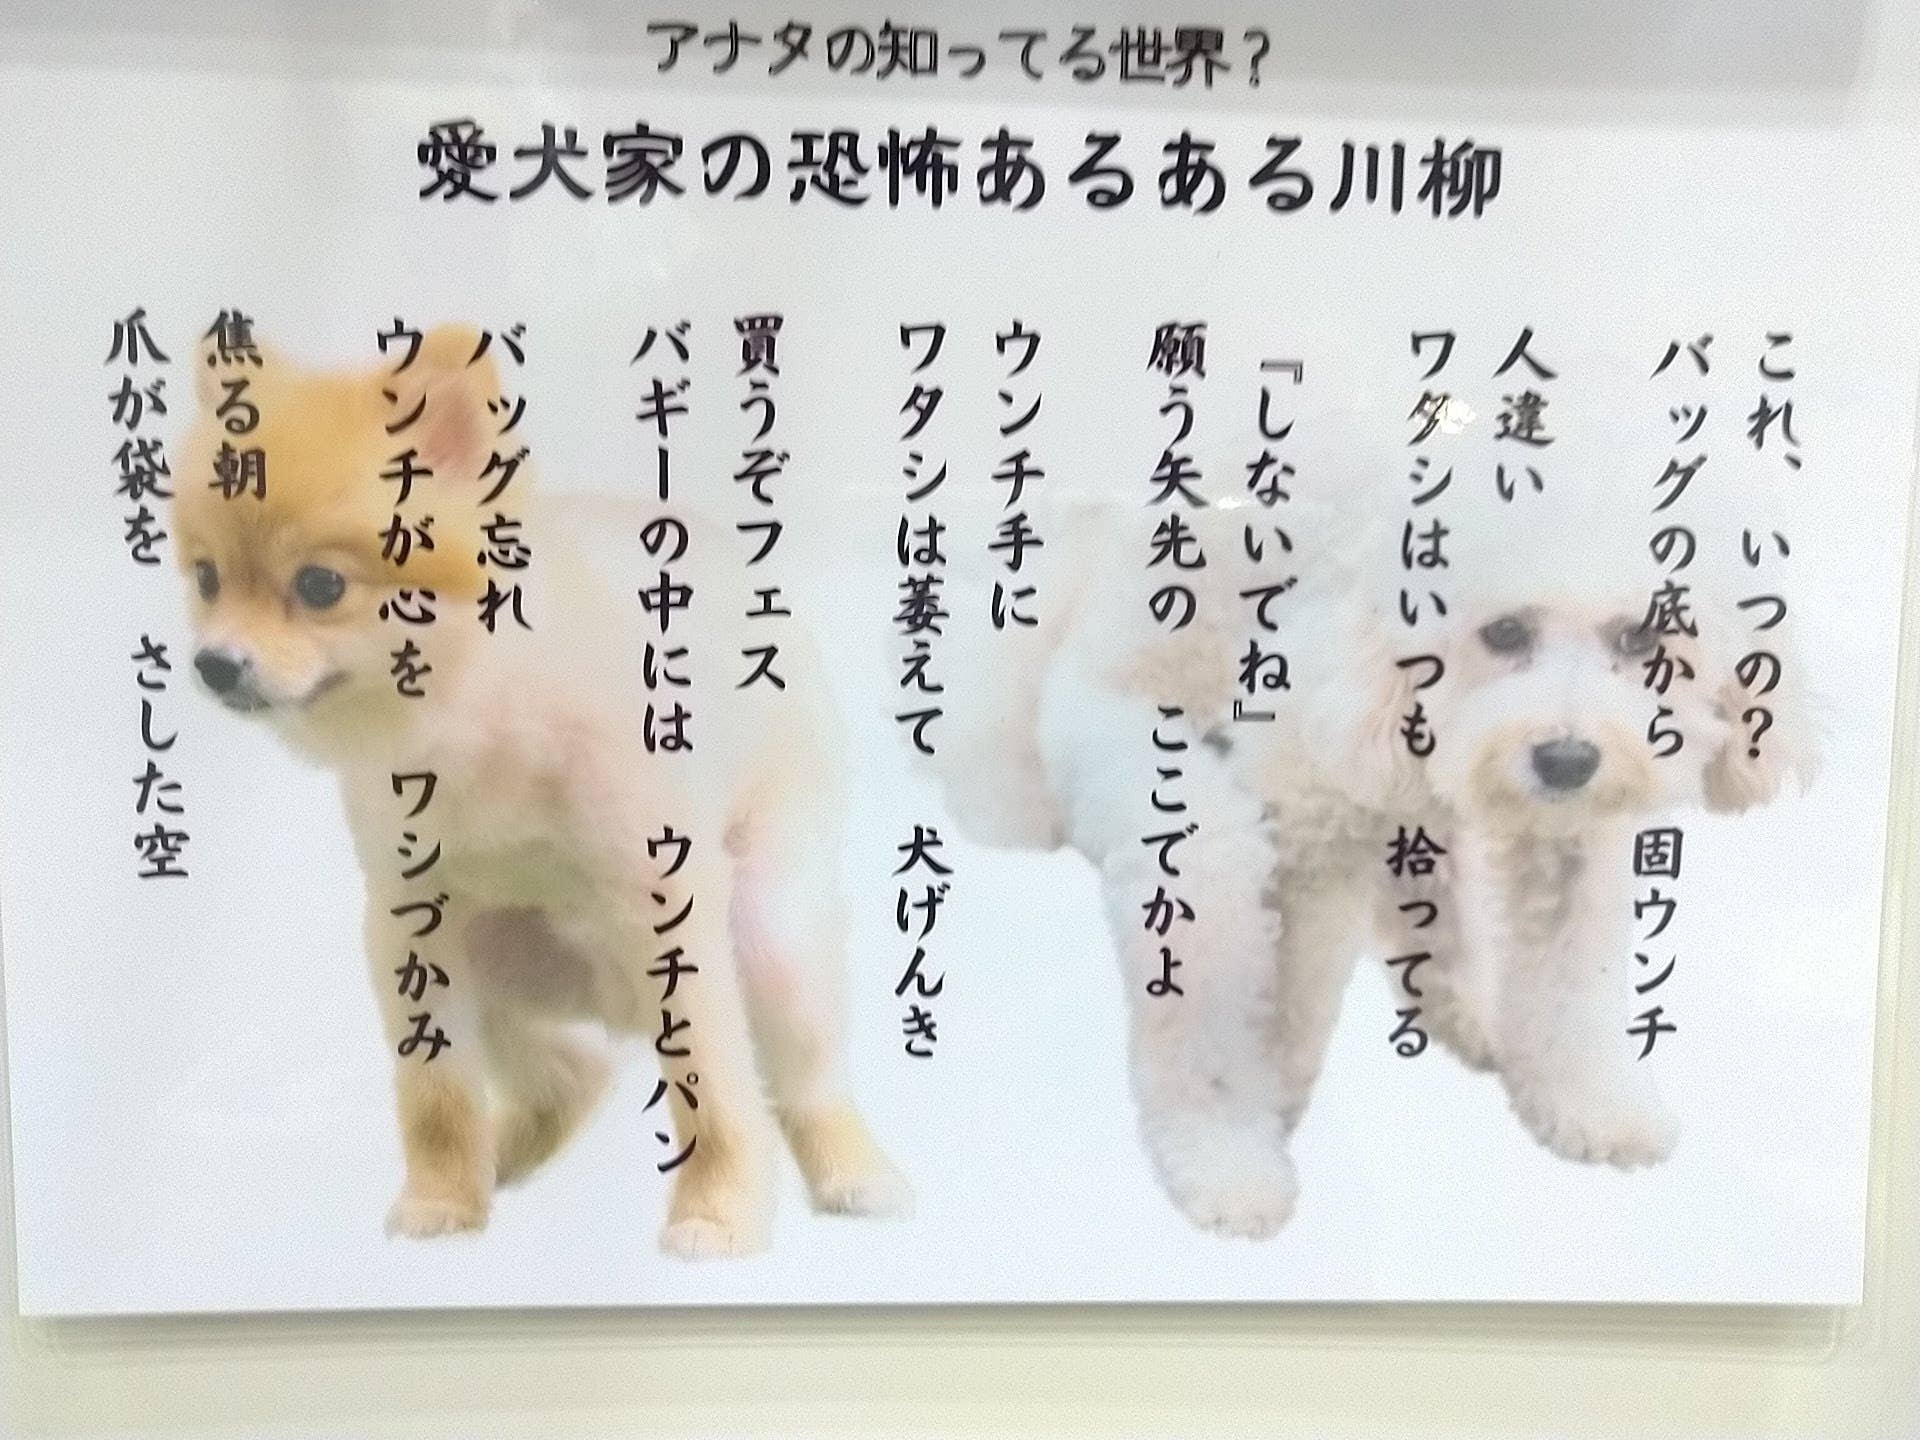 アナタの知ってる世界？
愛犬家の恐怖あるある川柳
これ、いつの？
バッグの底から 固ウンチ
人違い
ワタシはいつも 拾ってる
『しないでね』
願う矢先の ここでかよ
ウンチ手に
ワタシは萎えて 犬げんき
買うぞフェス
バギーの中には ウンチとパン
バッグ忘れ
ウンチが心を ワシづかみ
焦る朝
爪が袋を さした空